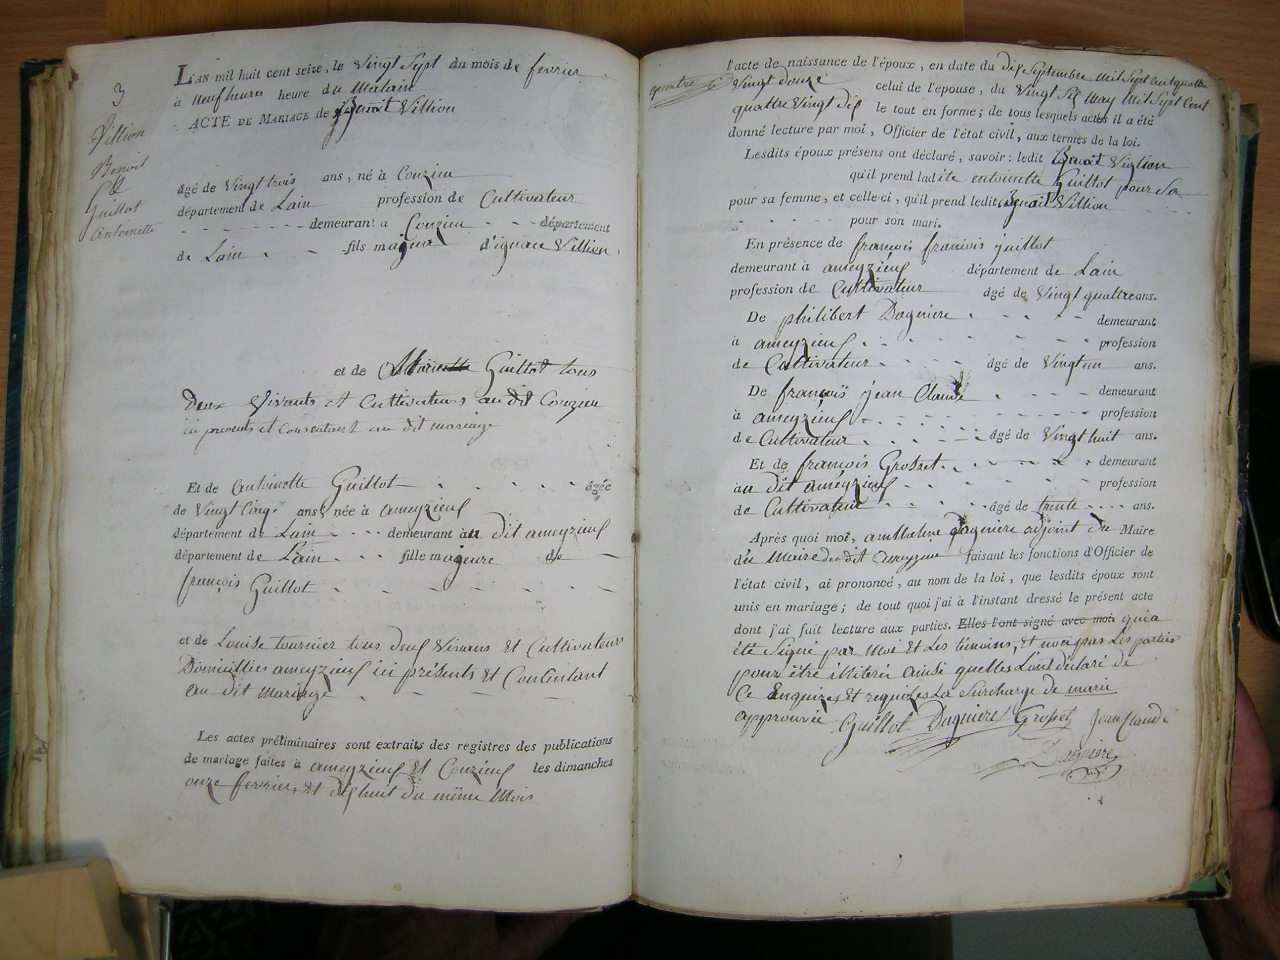 3
Villion
Benoit
&
Guillot
Antoinette
L'AN mil huit cent seize, le Vingt Sept du mois de fevrier
à Neuf heures heure du Matain
ACTE DE MARIAGE de Benoit Villion
âgé de Vingt trois ans, né à Couzieu
département de Lain profession de Cultivateur
demeurant à Couzieu département
de Lain fils majeur d'ignace Villion
et de Guillot tous
Deux Vivants et Cultivateurs au dit Couzieu
ici présents et Consentant au dit mariage
Et de antoinette Guillot âgée
de Vingt Cinq ans, née à ameyzieuf
département de Lain demeurant à au dit ameyzieuf
département de Lain fille majeure de
françois Guillot
et de Louise tournier tous deuf Vivans Et Cultivateurs
Domicilliés ameyzieuf ici présents Et Consentant
au dit Mariage
Les actes préliminaires sont extraits des registres des publications
de mariage faites à ameyzieuf Et Couzieuf les dimanches
onze fevrier, Et dif huit du même Mois
l'acte de naissance de l'époux, en date du dif Septembre Mil Sept Cent quatre
Vingt douze celui de l'epouse, du Vingt Sif May Mil Sept Cent
quattre Vingt dif le tout en forme; de tous lesquels actes il a été
donné lecture par moi, Officier de l'état civil, aux termes de la loi.
Lesdits époux présens ont déclaré, savoir: ledit Benoit Viglion
qu'il prend ladite antoinette Guillot pour Sa
pour sa femme, et celle-ci, qu'il prend ledit Benoit Villion
pour son mari.
En présence de françois françois guillot
demeurant à ameyzieuf département de Lain
profession de Cultivateur âgé de Vingt quattre ans.
De philibert Dagniere demeurant
à ameyzieuf profession
de Cultivateur âgé de Vingt un ans.
De françois jean Claude demeurant
à ameyzieuf profession
de Cultivateur âgé de Vingt huit ans.
Et de françois Grosset demeurant
à au dit améyzieuf profession
de Cultivateur âgé de trente ans.
Après quoi moi, anthelme Dagniere adjoint du Maire
du Maire du dit ameyzieu faisant les fonctions d'Officier de
l'état civil, ai prononcé, au nom de la loi, que lesdits époux sont
unis en mariage; de tout quoi j'ai à l'instant dressé le présent acte
dont j'ai fait lecture aux parties. Elles l'ont signé avec moi qui a
été Signé par Moi Et Les témoins, Et non pas Les parties
pour être illitéré ainsi quelles Lont déclaré de
Ce Enquises Et requises La Surcharge de marie
approuvée Guillot Dagniere Grosset Jean Claude
Dagniere